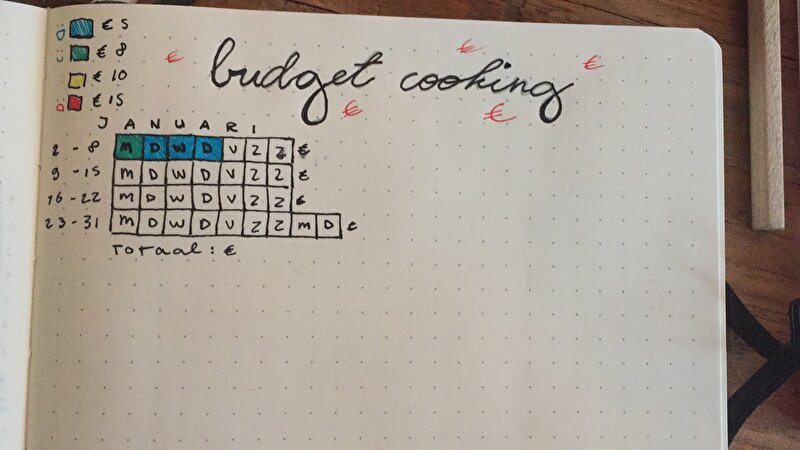 € 5
€ 8
€ 10
€ 15
budget cooking
€ € € € €
JANUARI
2 - 8 M D W D V Z Z €
9 - 15 M D W D V Z Z €
16 - 22 M D W D V Z Z €
23 - 31 M D W D V Z Z M D €
Totaal : €